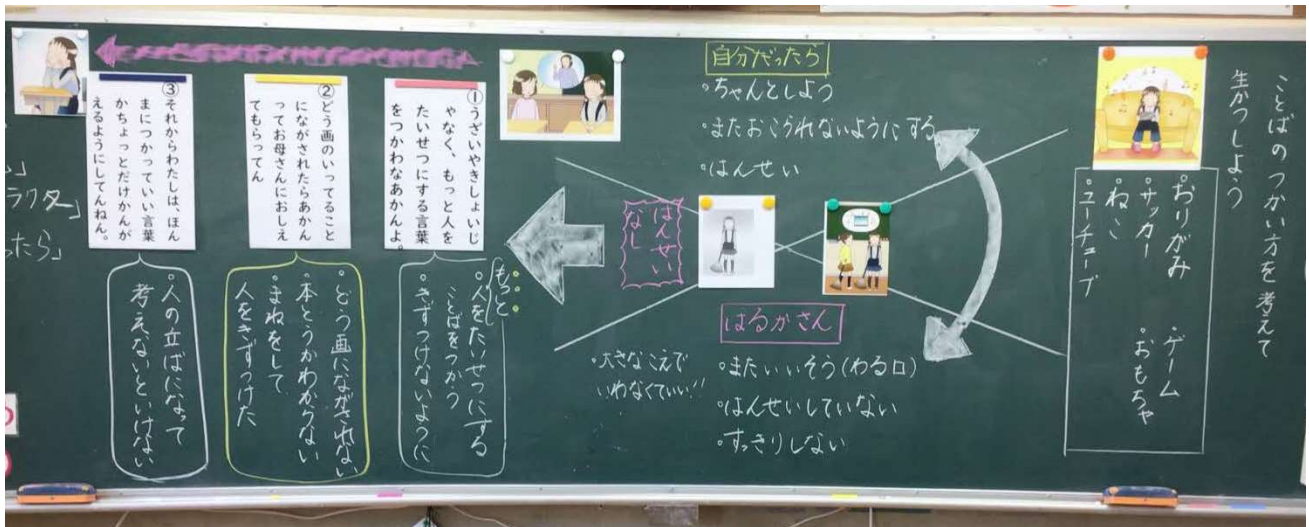 ことばのつかい方を考えて
生かつしよう
・おりがみ
・サッカー
・ねこ
・ユーチューブ
・ゲーム
・おもちゃ
自分だったら
・ちゃんとしよう
・またおこられないようにする
・はんせい
はるかさん
・またいいそう(わる口)
・はんせいしていない
・すっきりしない
・大きなこえで
いわなくていい!!
はんせい
なし
①うざいやきしょいじ
ゃなく、もっと人を
たいせつにする言葉
をつかわなあかんよ。
もっと
・人をたいせつにする
ことばをつかう
・きずつけないように
②
どう画のいってること
にながされたらあかん
ってお母さんにおしえ
てもらってん
・どう画にながされない
・本とうかわからない
・まねをして
人をきずつけた
③
それからわたしは、ほん
まにつかっていい言葉
かちょっとだけかんが
えるようにしてんねん。
・人の立ばになって
考えないといけない
ラクター
たら」